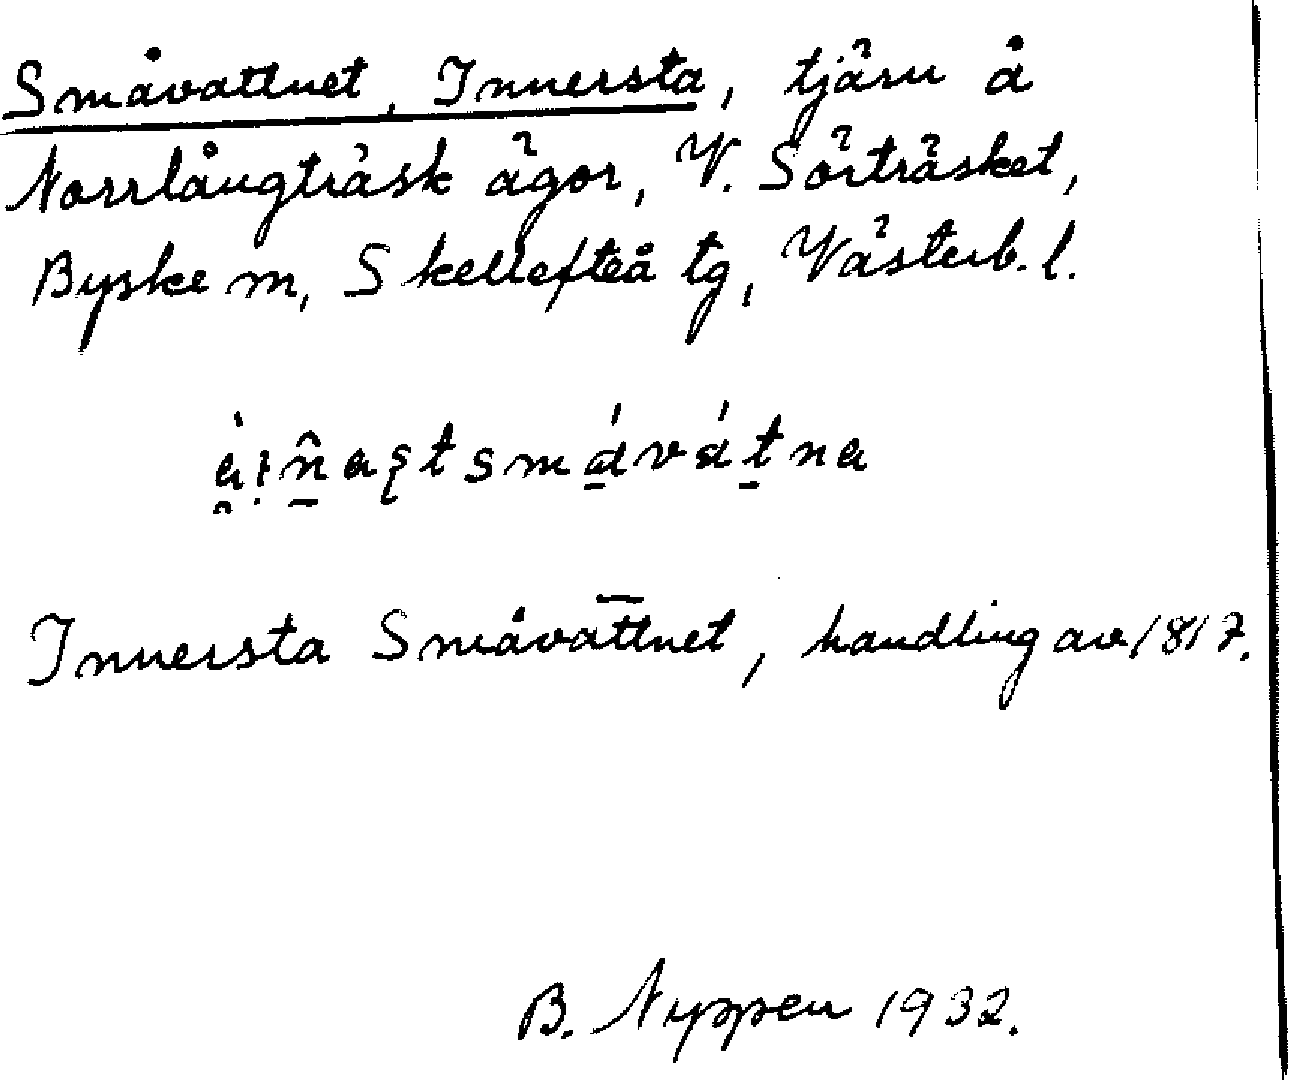 Småvattnet, Innersta, tjärn å
Norrlångträsk ägor, V. Sörträsket,
Byske m, Skellefteå tg, Västerb. l.
Innersta Småvattnet, handling av 1817.
B. Nyppen 1932.